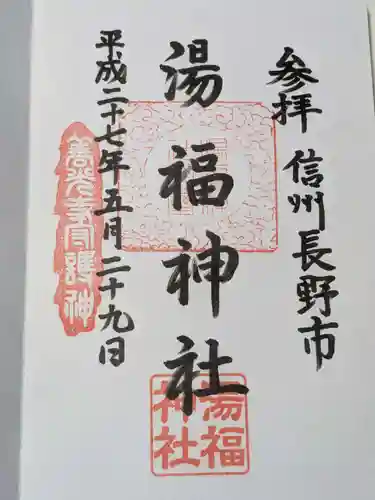 参拝 信州長野市
湯福神社
平成二十七年五月二十九日
善光寺守護神
湯福
神社